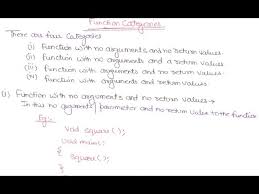 Function Categories
There are four Categories
(i) Function with no arguments and no return values
(ii) function with no arguments and a return values
(iii) function with arguments and no return values
(iv) function with arguments and return values
(i) Function with no arguments and no return values →
In this no arguments / parameter and no return value to the function
Eg:-
Void square();
Void main()
{
square();
}